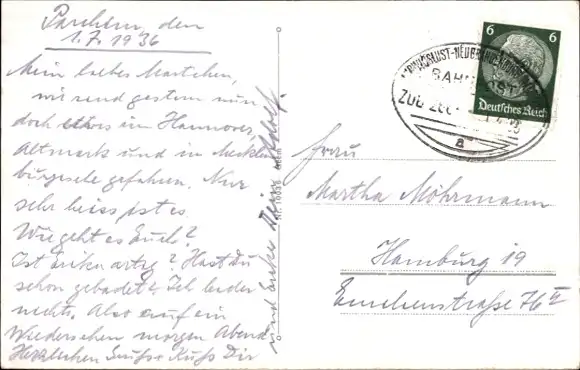 Parchim, den
1.7.1936
Mein liebes Martchen,
wir sind gestern nun
doch in Hannover,
Altmark und in Mecklen
burg gefahren. Nur
sehr heiss ist es.
Wie geht es Euch?
Ist Erika artig? Hast Du
schon gebadet? Ich leider
nicht. Also auf ein
Wiedersehen morgen Abend
Herzlichen Gruß + Kuß Dir
und Erika Dein Adolf.
LUDWIGSLUST-NEUBRANDENBURG
BAHNPOST
ZUG
a
6 6
Deutsches Reich
Frau
Martha Möhrmann
Hamburg 19
Emilienstraße 76 II